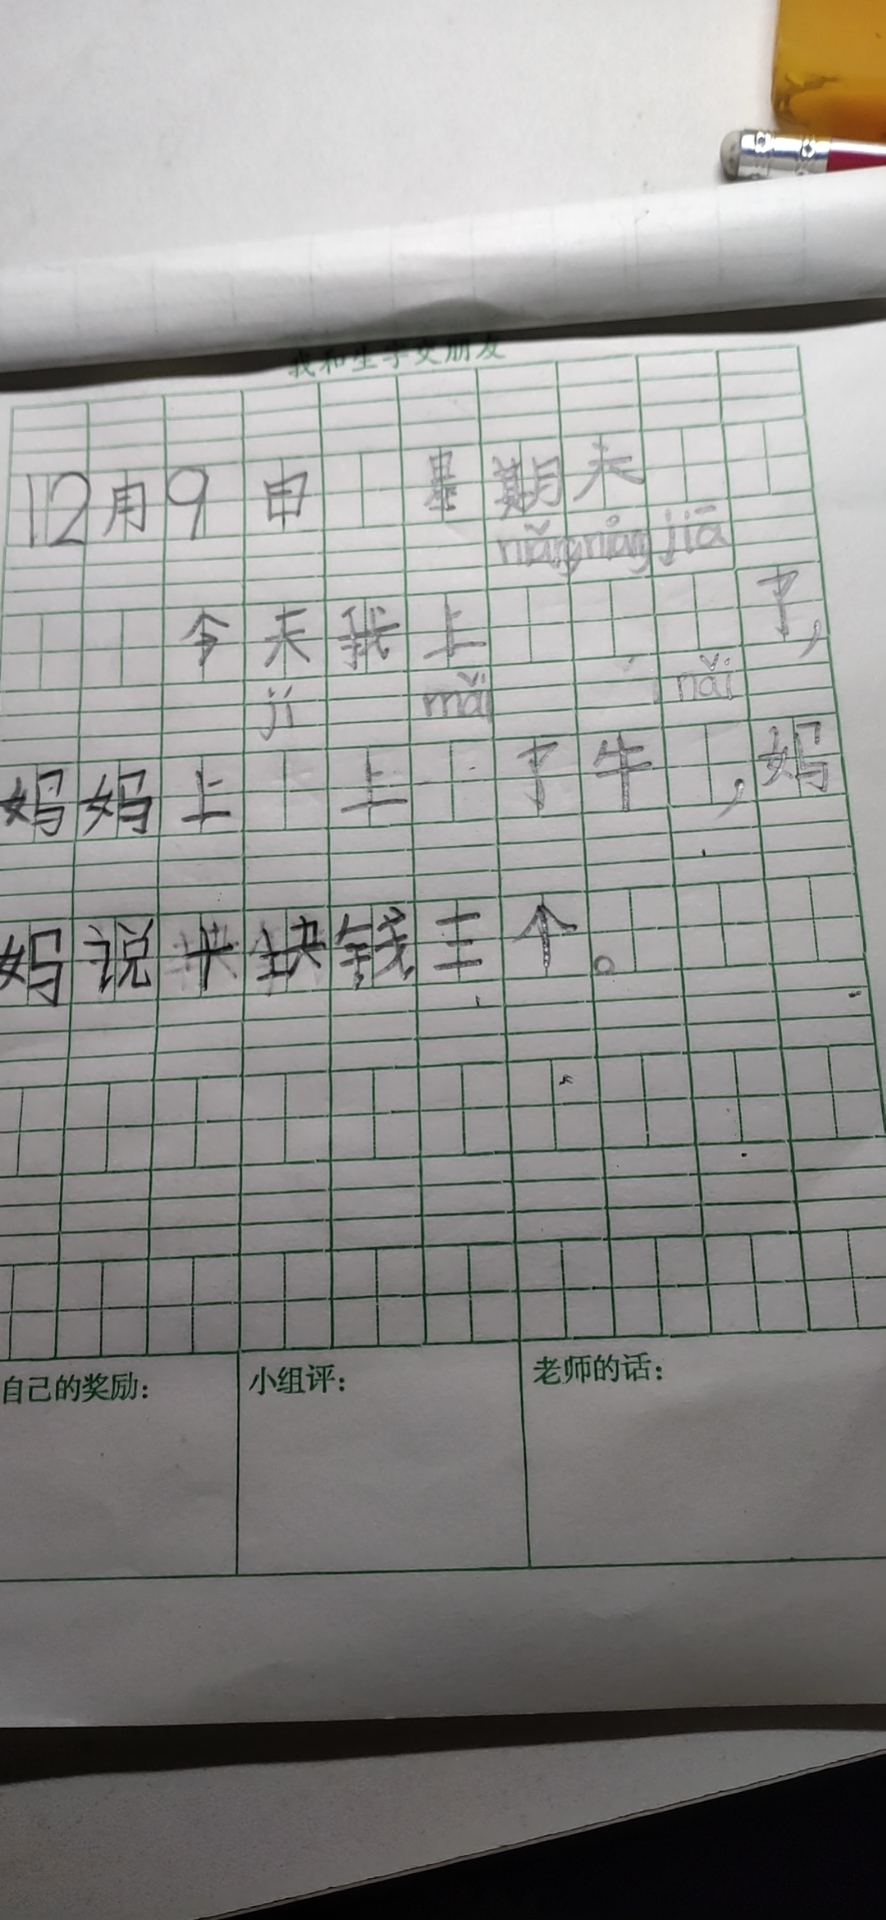 我和生字交朋友
12月9日 星期天
niáng niang jiā
今天我上 了，
jí mǎi nǎi
妈妈上 上 了牛 ，妈
妈说十块钱三个。
自己的奖励： 小组评： 老师的话：